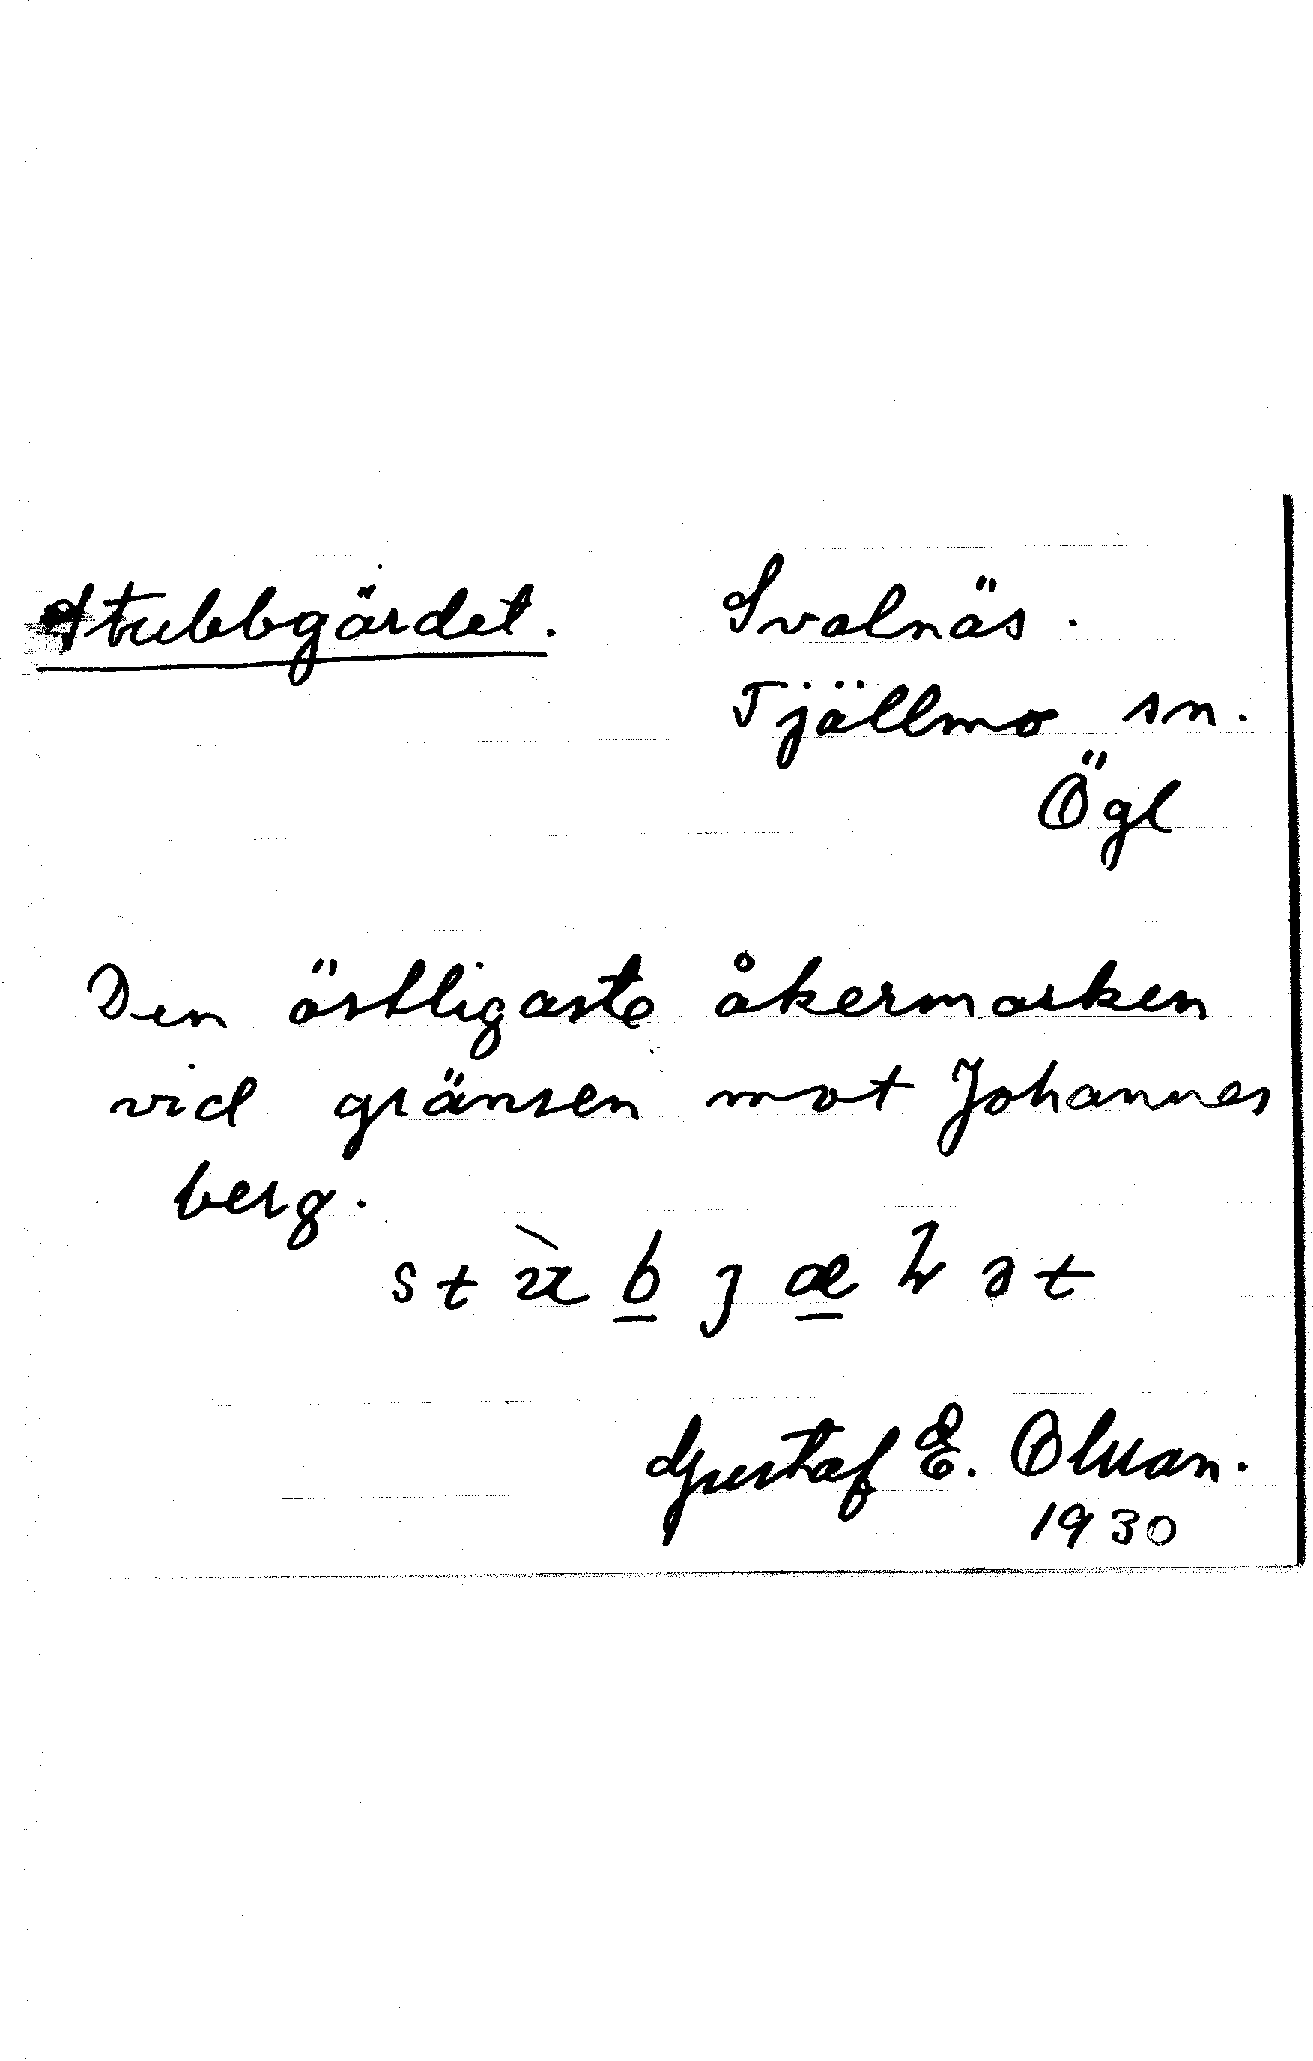 Stubbgärdet. Svalnäs.
Tjällmo sn.
Ögl
Den östligaste åkermarken
vid gränsen mot Johannes
berg.
Gustaf E.
1930